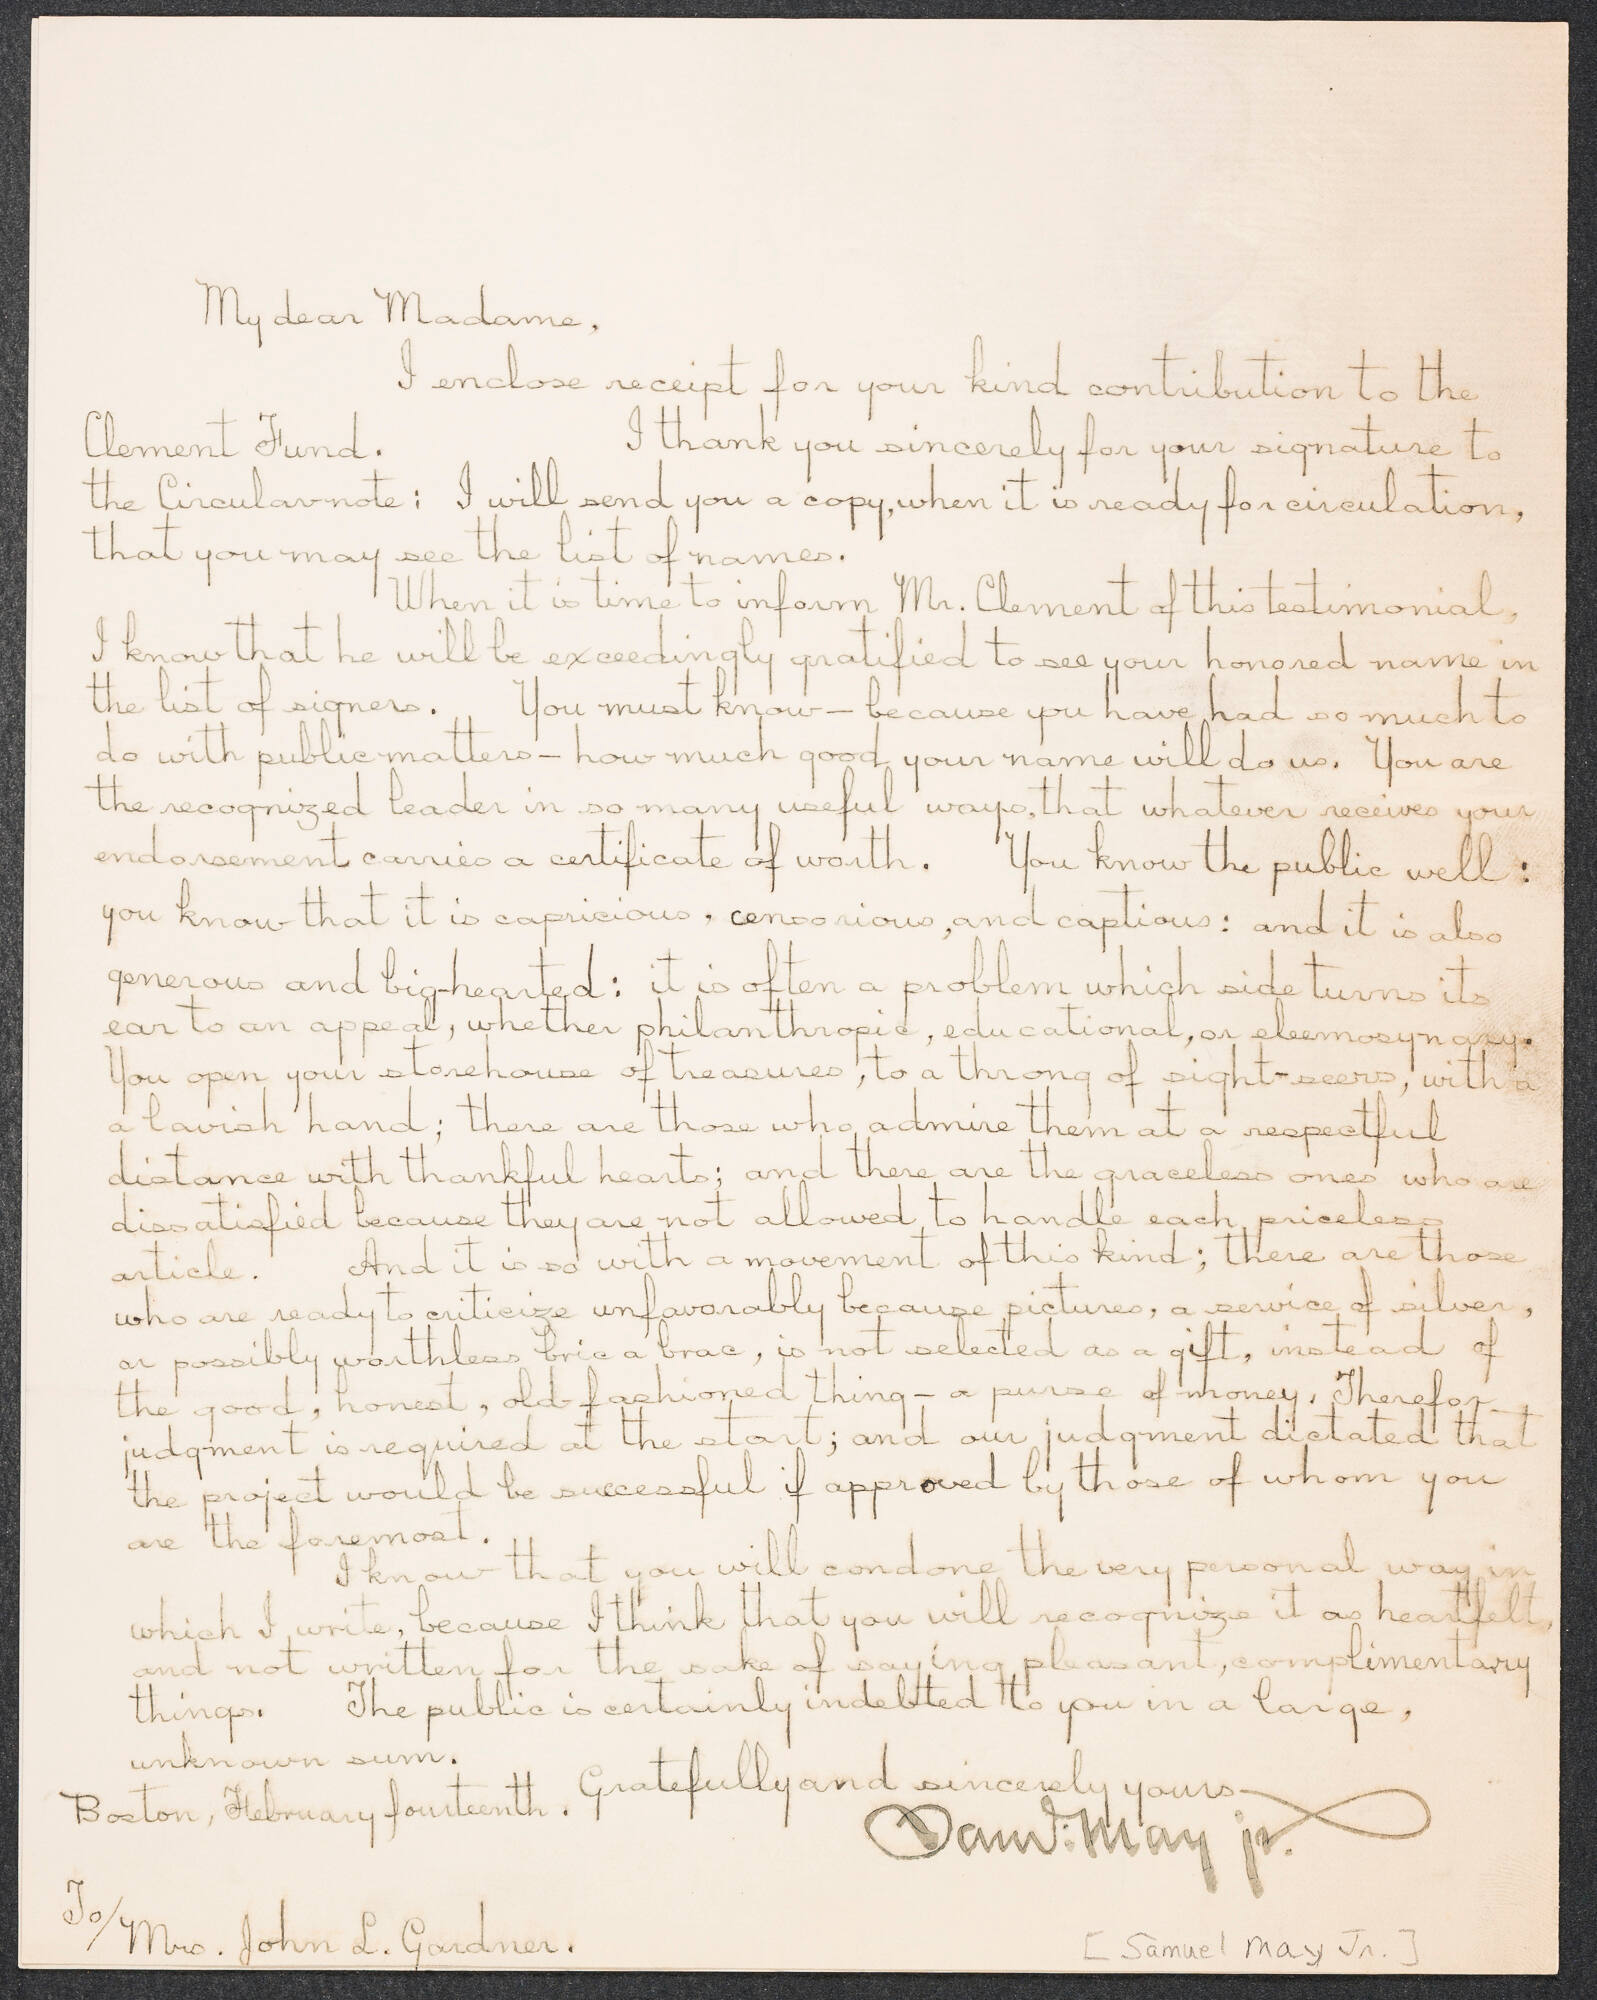 My dear Madame,
I enclose receipt for your kind contribution to the
Clement Fund. I thank you sincerely for your signature to
the Circular note: I will send you a copy, when it is ready for circulation,
that you may see the list of names.
When it is time to inform Mr. Clement of this testimonial,
I know that he will be exceedingly gratified to see your honored name in
the list of signers. You must know — because you have had so much to
do with public matters — how much good your name will do us. You are
the recognized leader in so many useful ways, that whatever receives your
endorsement carries a certificate of worth. You know the public well:
you know that it is capricious, censorious, and captious: and it is also
generous and big-hearted: it is often a problem which side turns its
ear to an appeal, whether philanthropic, educational, or eleemosynary.
You open your storehouse of treasures, to a throng of sight-seers, with a
a lavish hand; there are those who admire them at a respectful
distance with thankful hearts; and there are the graceless ones who are
dissatisfied because they are not allowed to handle each priceless
article. And it is so with a movement of this kind; there are those
who are ready to criticize unfavorably because pictures, a service of silver,
or possibly worthless bric a brac, is not selected as a gift, instead of
the good, honest, old-fashioned thing — a purse of money. Therefor
judgment is required at the start; and our judgment dictated that
the project would be successful if approved by those of whom you
are the foremost.
I know that you will condone the very personal way in
which I write, because I think that you will recognize it as heartfelt,
and not written for the sake of saying pleasant, complimentary
things. The public is certainly indebted to you in a large,
unknown sum.
Gratefully and sincerely yours
Boston, February fourteenth.
Saml. May jr.
To/
Mrs. John L. Gardner.
[Samuel May Jr.]